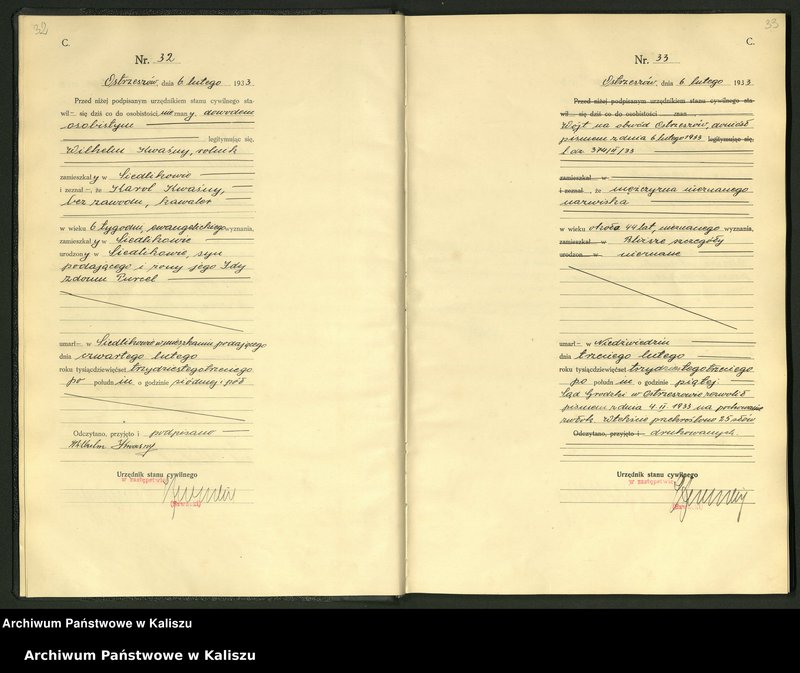 32
C.
Nr. 32
Ostrzeszów, dnia 6 lutego 1933
Przed niżej podpisanym urzędnikiem stanu cywilnego sta-
wił— się dziś co do osobistości nieznany, dowodem
osobistym
legitymując się,
Wilhelm Kwaśny, rolnik
zamieszkały w Siedlikowie
i zeznał—, że Karol Kwaśny,
bez zawodu, kawaler
w wieku 6 tygodni, ewangelickiego wyznania,
zamieszkały w Siedlikowie
urodzony w Siedlikowie, syn
podającego i żony jego Idy
zdomu Purcel
umarł— w Siedlikowie w mieszkaniu podającego
dnia czwartego lutego
roku tysiącdziewięćset trzydziestegotrzeciego
po połudn iu o godzinie siódmej i pół
Odczytano, przyjęto i podpisano
Wilhelm Kwasny
Urzędnik stanu cywilnego
w zastępstwie
33
C.
Nr. 33
Ostrzeszów, dnia 6 lutego 1933
Przed niżej podpisanym urzędnikiem stanu cywilnego sta-
wił— się dziś co do osobistości znan,
Wójt na obwód Ostrzeszów, doniósł
pismem z dnia 6 lutego 1933 legitymując się,
L.dz. 374/II/33
zamieszkał w
i zeznał, że mężczyzna nieznanego
nazwiska
w wieku około 44 lat, nieznanego wyznania,
zamieszkał w Bliższe szczegóły
urodzon w nieznane
umarł— w Niedźwiedziu
dnia trzeciego lutego
roku tysiącdziewięćset trzydziestegotrzeciego
po połudn iu o godzinie piątej.
Sąd Grodzki w Ostrzeszowie zezwolił
pismem z dnia 4 II 1933 na pochowanie
zwłok. Właśnie przekreślono 25 słów
Odczytano, przyjęto i drukowanych.
Urzędnik stanu cywilnego
w zastępstwie
Archiwum Państwowe w Kaliszu
Archiwum Państwowe w Kaliszu